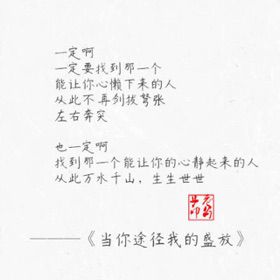 一定啊
一定要找到那一个
能让你心懒下来的人
从此不再剑拔弩张
左右奔突
也一定啊
找到那一个能让你的心静起来的人
从此万水千山，生生世世
———《当你途径我的盛放》